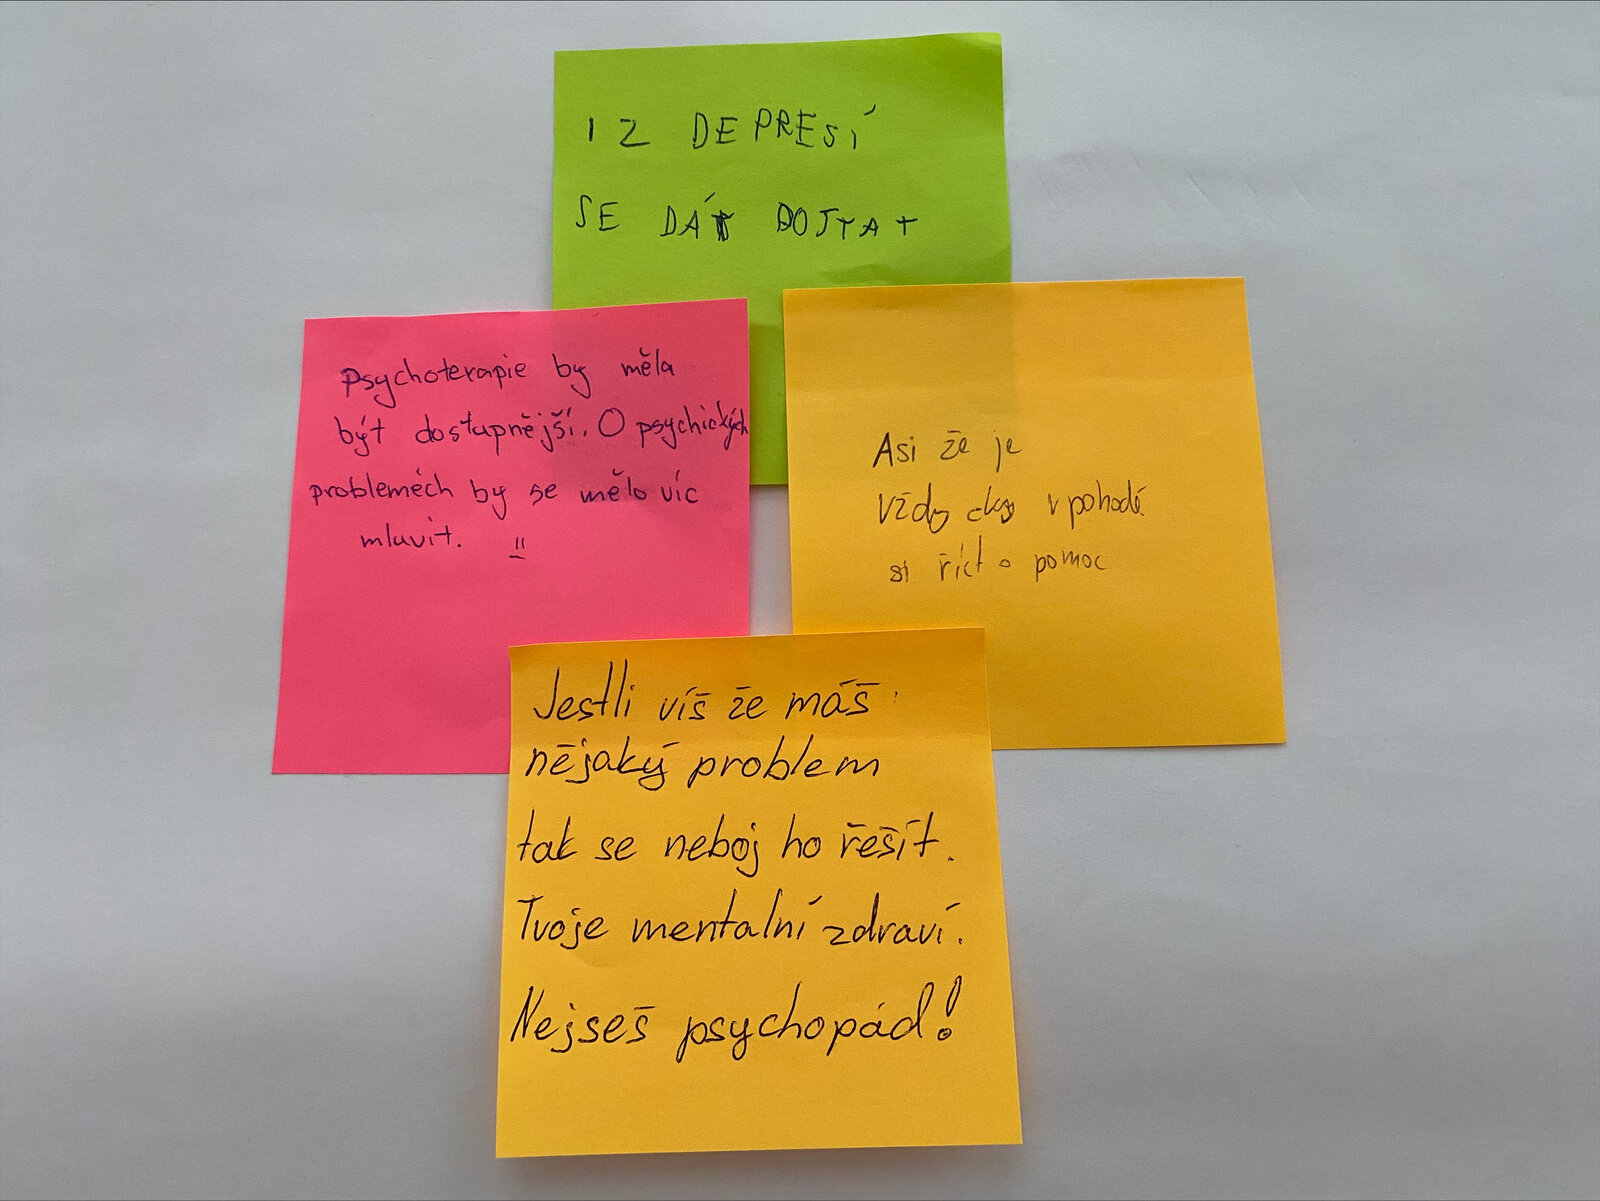 I Z DEPRESÍ
SE DÁ DOSTAT
Psychoterapie by měla
být dostupnější. O psychických
problémech by se mělo víc
mluvit. !!
Asi že je
vždy oky v pohodě
si říct o pomoc
Jestli víš že máš
nějaký problem
tak se neboj ho řešit.
Tvoje mentalní zdraví.
Nejseš psychopád!